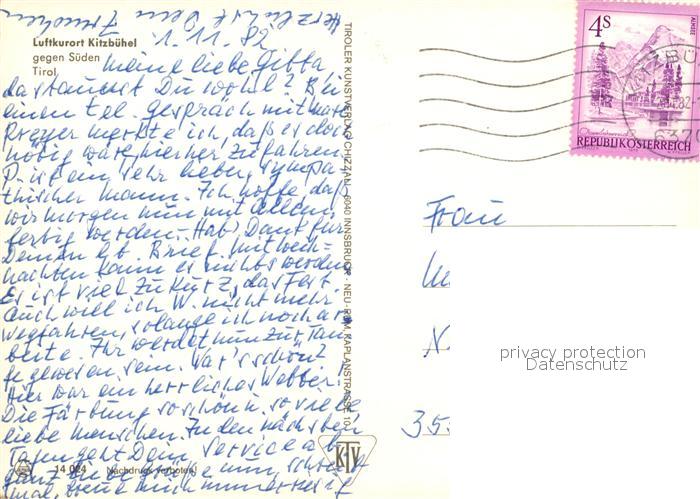 Herzlichst Dein
1.11.82
Luftkurort Kitzbühel
gegen Süden
Tirol
meine liebe Gitta!
da staunst Du wohl? Bei
einem tel. Gespräch mit
merkte ich, daß es doch
nötig wäre, hierher zu fahren.
P. ist ein sehr lieber, sympa-
thischer Mann. Ich hoffe, daß
wir morgen nun mit allem
fertig werden. Hab' Dank für
Deinen lb. Brief. Mit Weih-
nachten kann es nichts werden
Es ist viel zu kurz, das Fest.
Auch will ich W. nicht mehr
wegfahren, solange ich noch
beite. Ihr werdet nun zur
gewesen sein. War's schön?
Hier war ein herrliches
Die Färbung so schön u. so viele
liebe Menschen. In den nächsten
Tagen geht Dein Service ab
ganz
mal, freue mich
14 024 Nachdruck verboten!
TIROLER KUNSTVERLAG CHIZZALI · 6040 INNSBRUCK · NEU-RUM, KAPLANSTRASSE 10
KTV
4S
ALMSEE
Oberösterreich
REPUBLIK ÖSTERREICH
KITZBÜ
82
637
Frau
N
35
privacy protection
Datenschutz